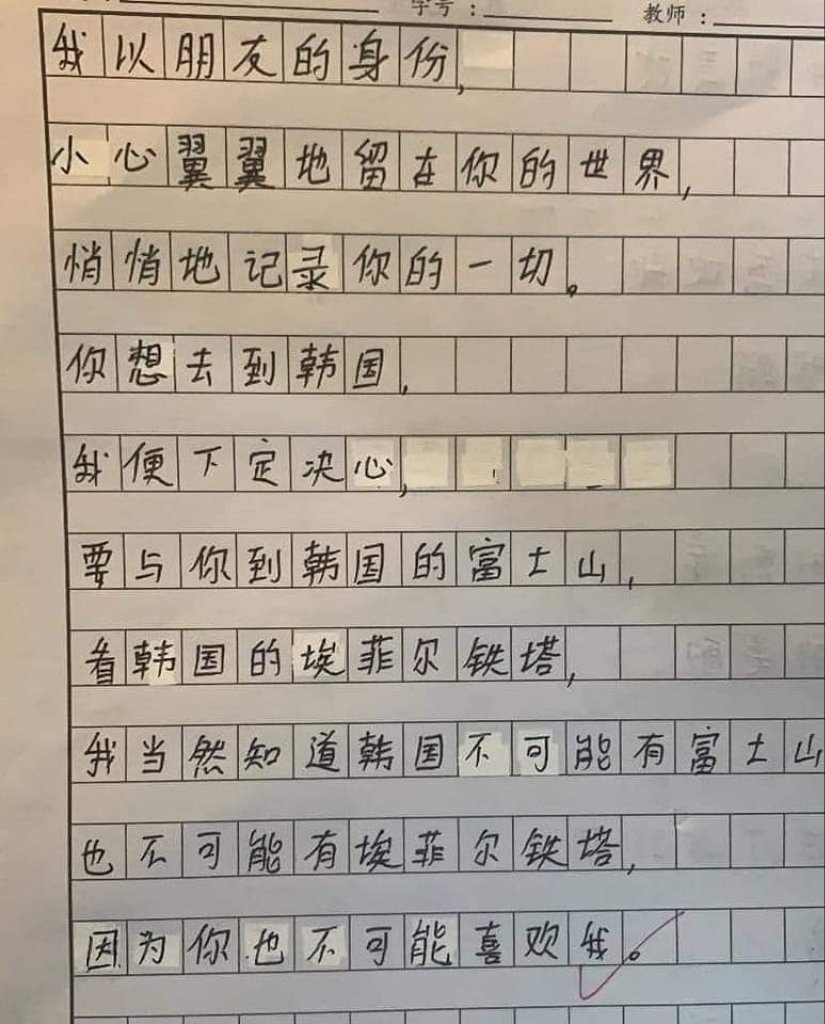 学号： 教师：
我以朋友的身份，
小心翼翼地留在你的世界，
悄悄地记录你的一切。
你想去到韩国，
我便下定决心，
要与你到韩国的富士山，
看韩国的埃菲尔铁塔，
我当然知道韩国不可能有富士山
也不可能有埃菲尔铁塔，
因为你也不可能喜欢我。